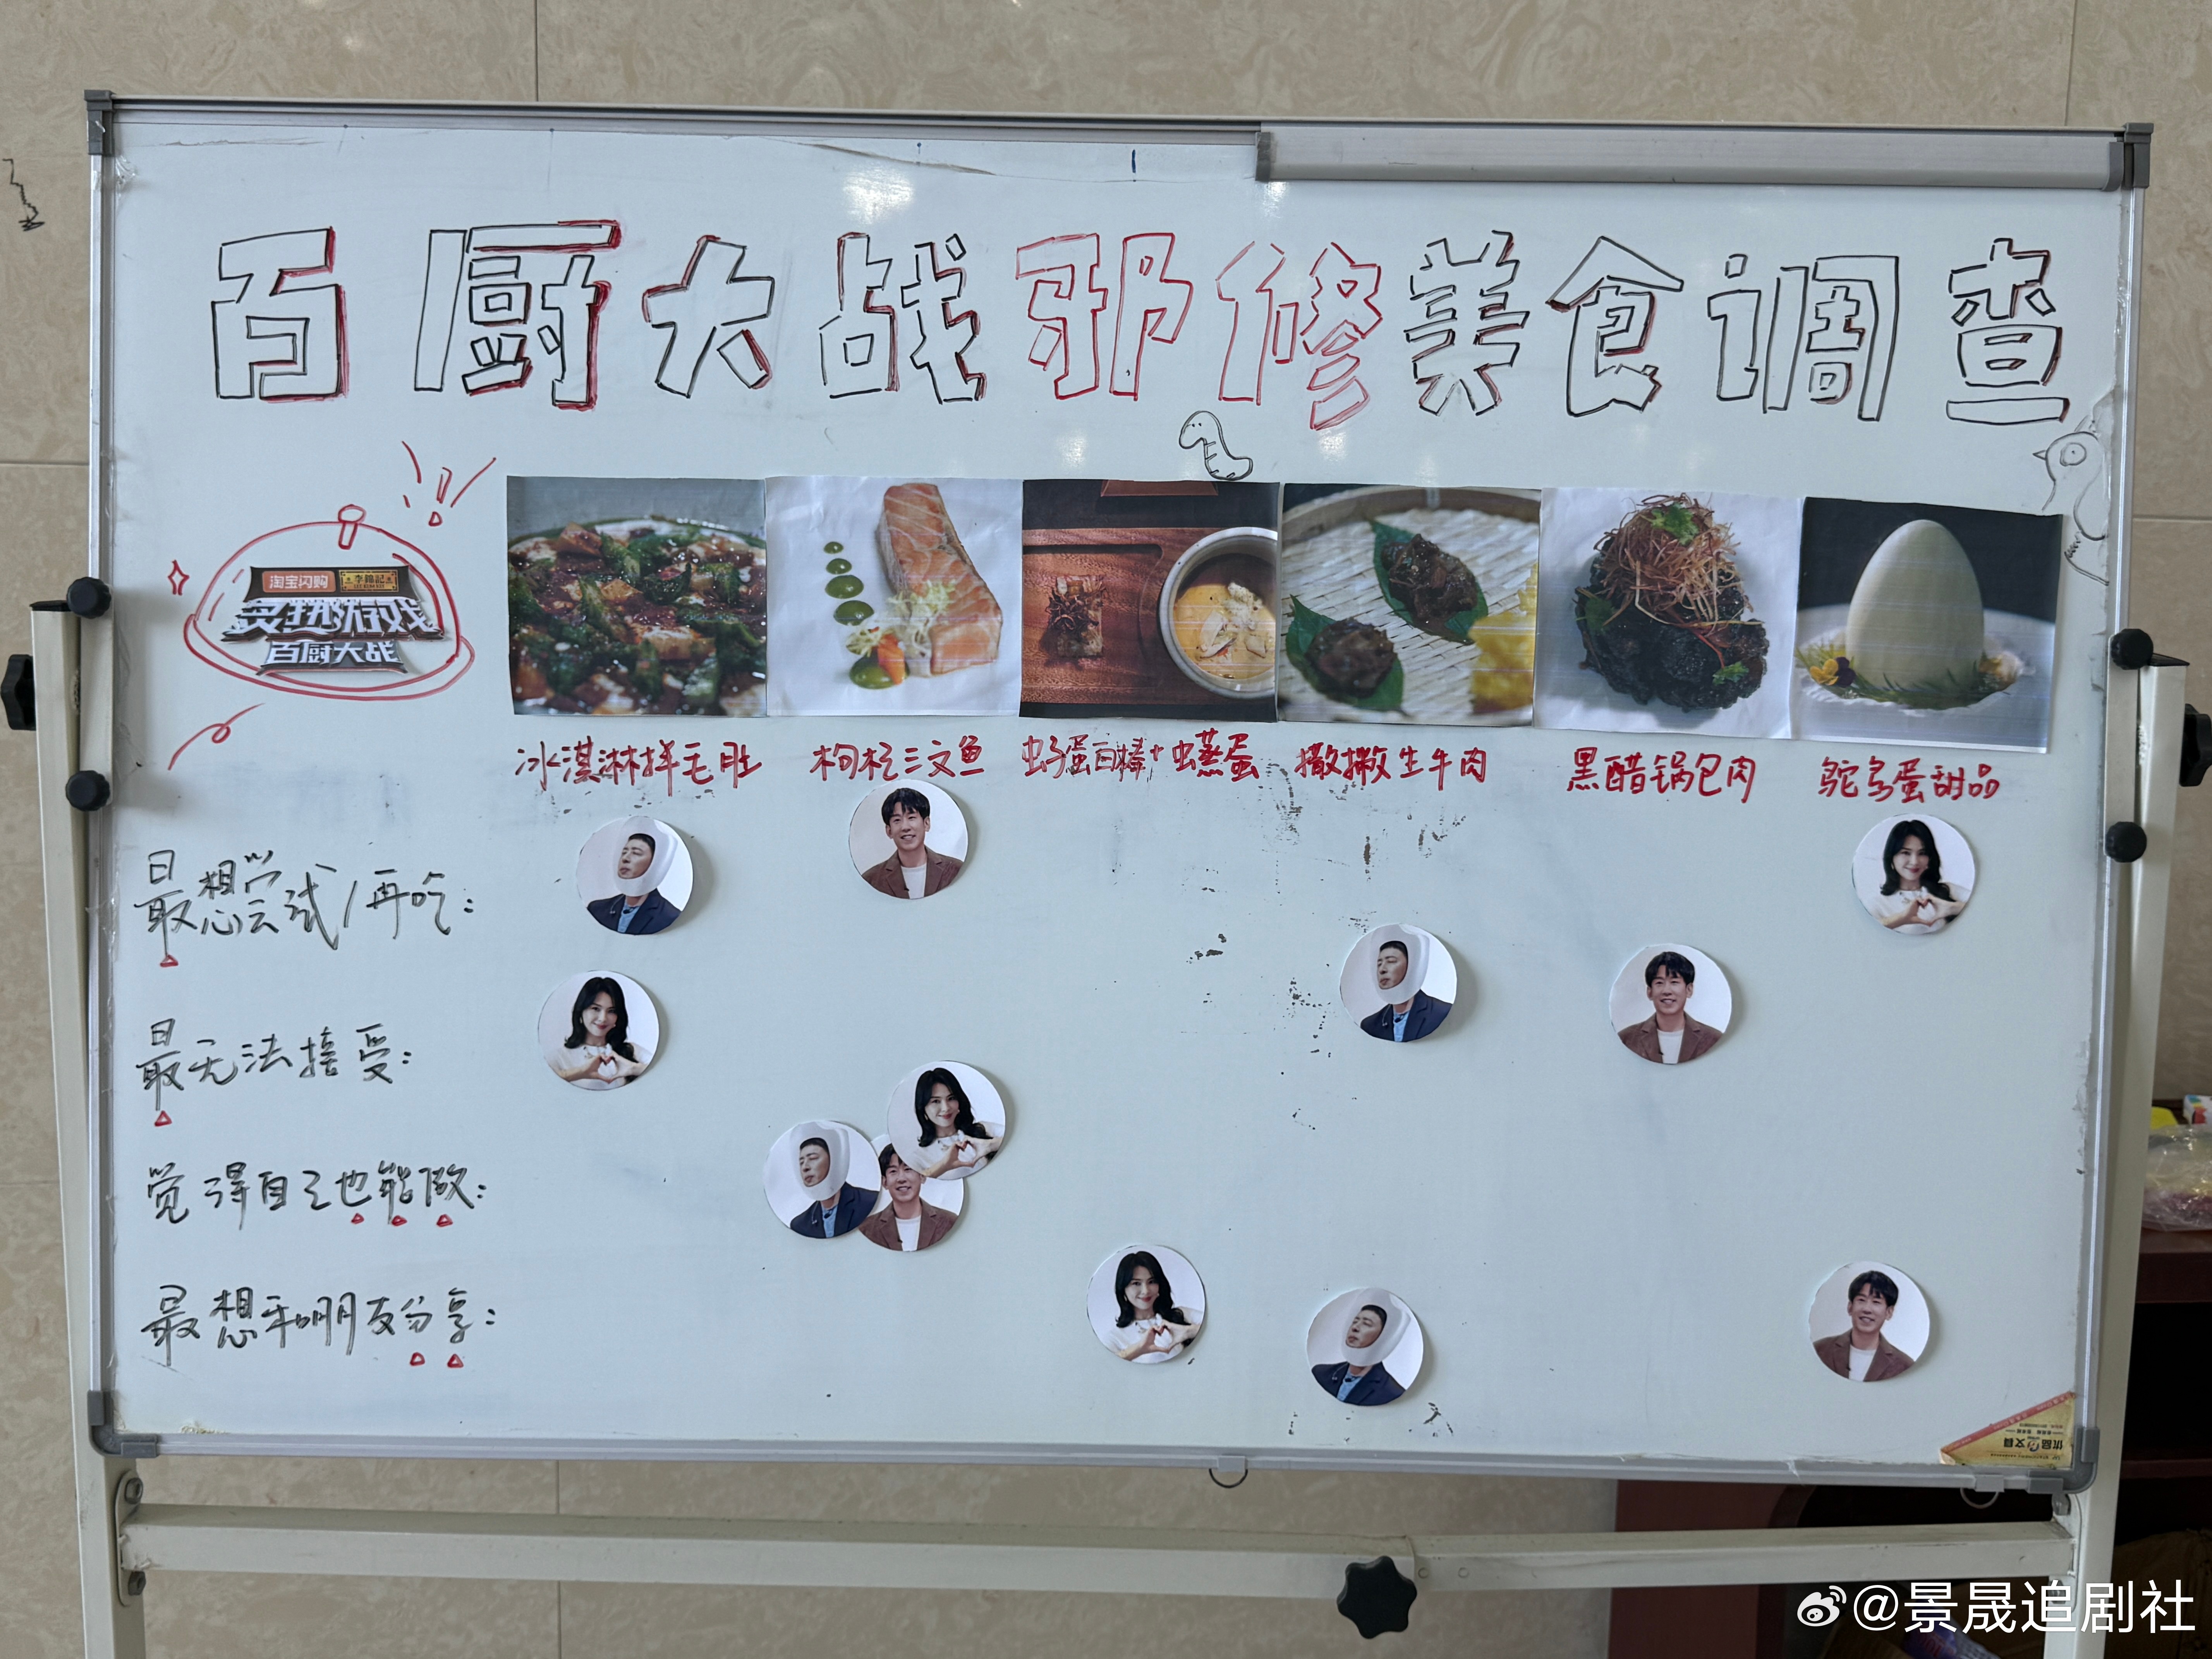 百厨大战邪修美食调查
淘宝闪购 李錦記
LEE KUM KEE
炙热游戏
百厨大战
冰淇淋拌毛肚 枸杞三文鱼 虫子蛋白棒+虫蒸蛋 撒撇生牛肉 黑醋锅包肉 鸵鸟蛋甜品
最想尝试/再吃:
最无法接受:
觉得自己也能做:
最想和朋友分享:
优品文具
@景晟追剧社